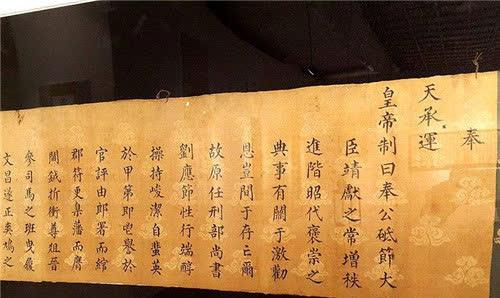 奉
天承運
皇帝制曰奉公砥節大
臣靖獻之常增秩
進階昭代褒崇之
典事有關于激勸
恩豈間于存亡爾
故原任刑部尚書
劉應節性行端醇
操持峻潔自蜚英
於甲第即譽於
官評由郎署而綰
郡符更臬藩而膺
閫鉞折衝尊俎晉
參司馬之班曳履
文昌遂正爽鳩之